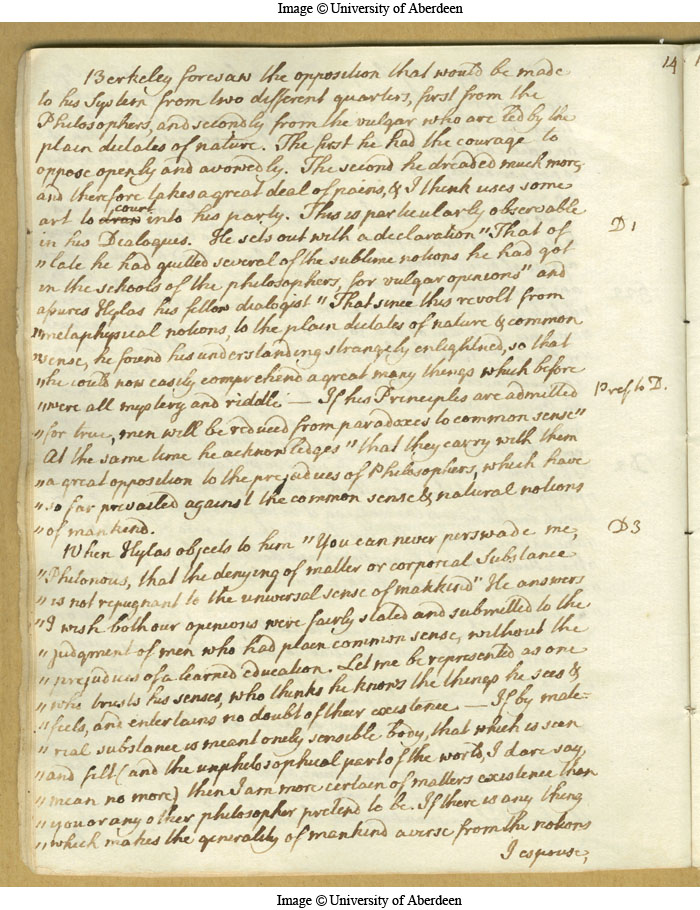 Image © University of Aberdeen
14
Berkeley foresaw the opposition that would be made
to his System from two different quarters, first from the
Philosophers, and secondly from the vulgar who are led by the
plain dictates of nature. The first he had the courage to
oppose openly and avowedly. The second he dreaded much more,
and therefore takes a great deal of pains, & I think uses some
art to draw court into his party. This is particularly observable
D 1
in his Dialogues. He sets out with a declaration "That of
" late he had quitted several of the sublime notions he had got
in the schools of the philosophers, for vulgar opinions" and
assures Hylas his fellow dialogist " That since this revolt from
" metaphysical notions, to the plain dictates of nature & common
" sense, he found his understanding strangely enlightned, so that
" he could now easily comprehend a great many things which before
" were all mystery and riddle — If his Principles are admitted
Pref to D.
" for true, men will be reduced from paradoxes to common sense"
At the same time he acknowledges " that they carry with them
" a great opposition to the prejudices of Philosophers, which have
" so far prevailed against the common sense & natural notions
" of mankind.
D 3
When Hylas objects to him " You can never perswade me,
" Philonous, that the denying of matter or corporeal Substance
" is not repugnant to the universal sense of mankind" He answers
" I wish both our opinions were fairly stated and submitted to the
" judgment of men who had plain common sense, without the
" prejudices of a learned education. Let me be represented as one
" who trusts his senses, who thinks he knows the things he sees &
" feels, and entertains no doubt of their existence — If by mate=
" rial substance is meant onely sensible body, that which is seen
" and felt (and the unphilosophical part of the world, I dare say,
" mean no more) then I am more certain of matters existence than
" you or any other philosopher pretend to be. If there is any thing
" which makes the generality of mankind averse from the notions
I espouse,
Image © University of Aberdeen